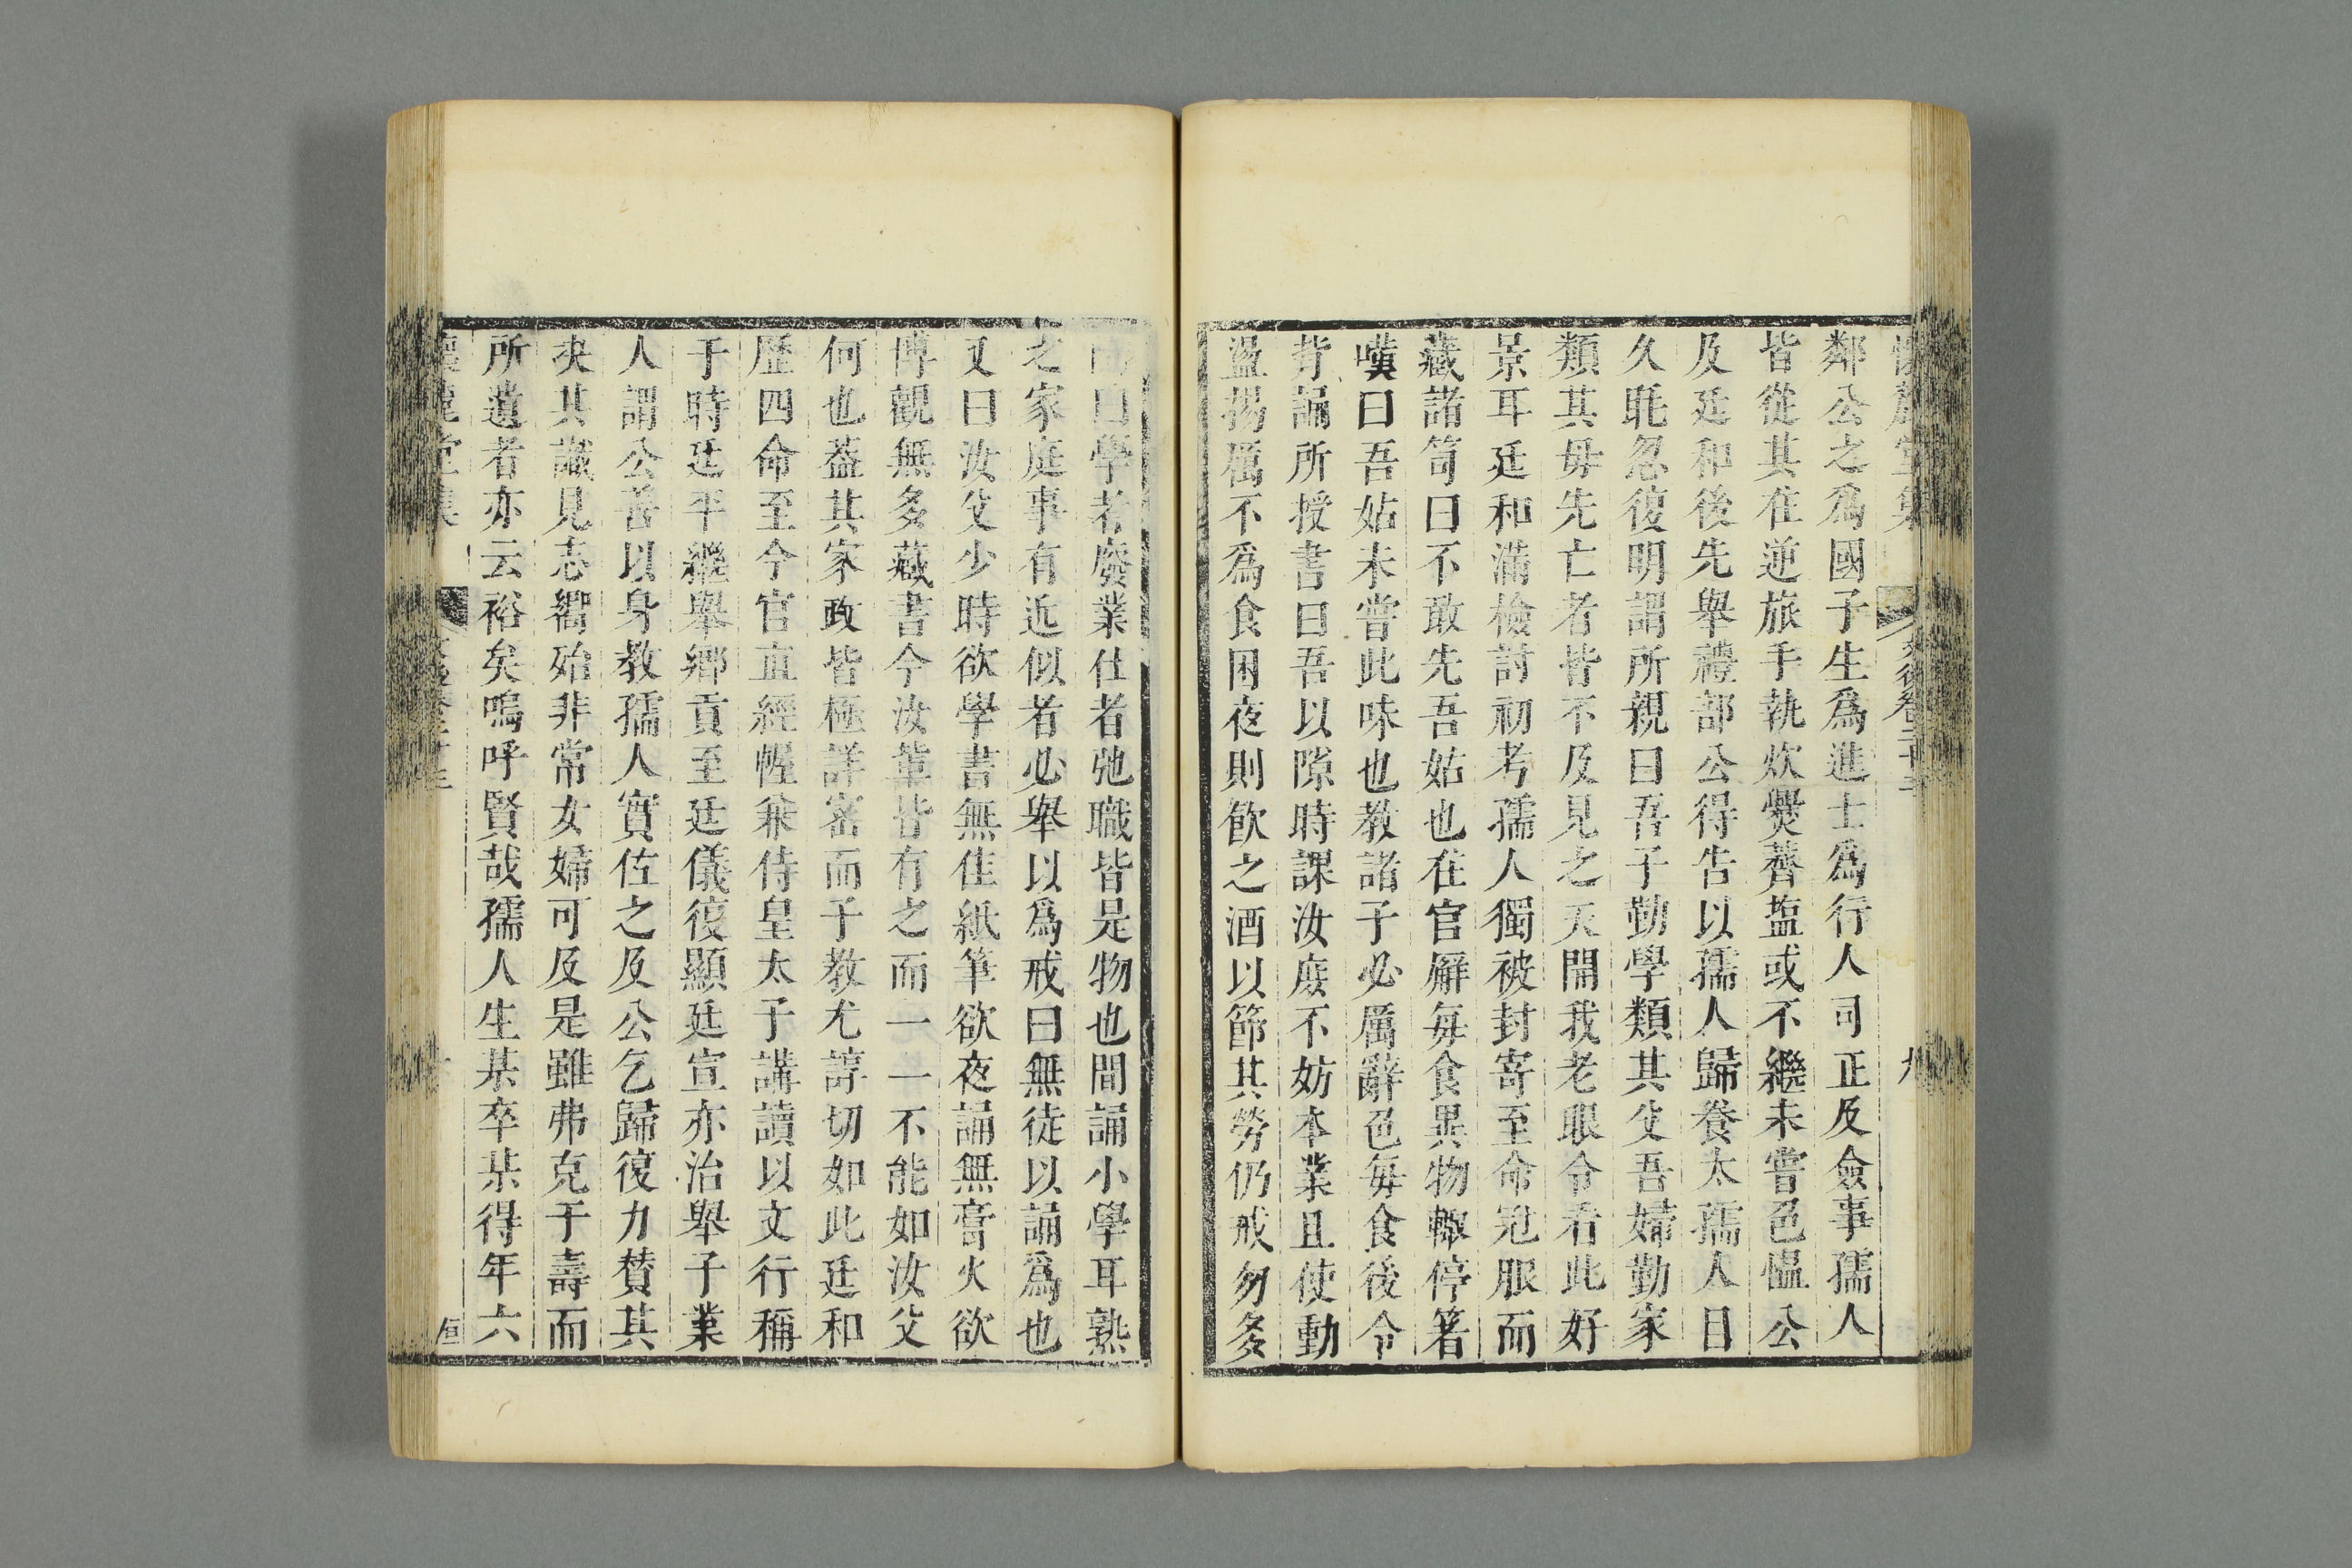 鄰公之爲國子生爲進士爲行人司正及僉事孺人
皆從其在逆旅手執炊爨虀塩或不繼未嘗色慍公
及廷和後先舉禮部公得告以孺人歸養太孺人目
久眊忽復明謂所親曰吾子勤學類其父吾婦勤家
類其毋先亡者皆不及見之天開我老眼令看此好
景耳廷和滿檢討初考孺人獨被封寄至命冠服而
藏諸笥曰不敢先吾姑也在官廨每食異物輙停箸
嘆曰吾姑未嘗此味也教諸子必厲辭色每食後令
背誦所授書曰吾以隙時課汝庶不妨本業且使動
盪揚厲不爲食困夜則飲之酒以節其勞仍戒勿多
曰學者廢業仕者弛職皆是物也間誦小學耳熟
之家庭事有近似者必舉以爲戒曰無徒以誦爲也
又曰汝父少時欲學書無佳紙筆欲夜誦無膏火欲
博觀無多藏書今汝輩皆有之而一一不能如汝父
何也葢其家政皆極詳密而于教尤諄切如此廷和
歷四命至今官直經幄兼侍皇太子講讀以文行稱
于時廷平繼舉鄉貢至廷儀復顯廷宣亦治舉子業
人謂公善以身教孺人實佐之及公乞歸復力賛其
決其識見志嚮殆非常女婦可及是雖弗克于壽而
所遺者亦云裕矣嗚呼賢哉孺人生某卒某得年六